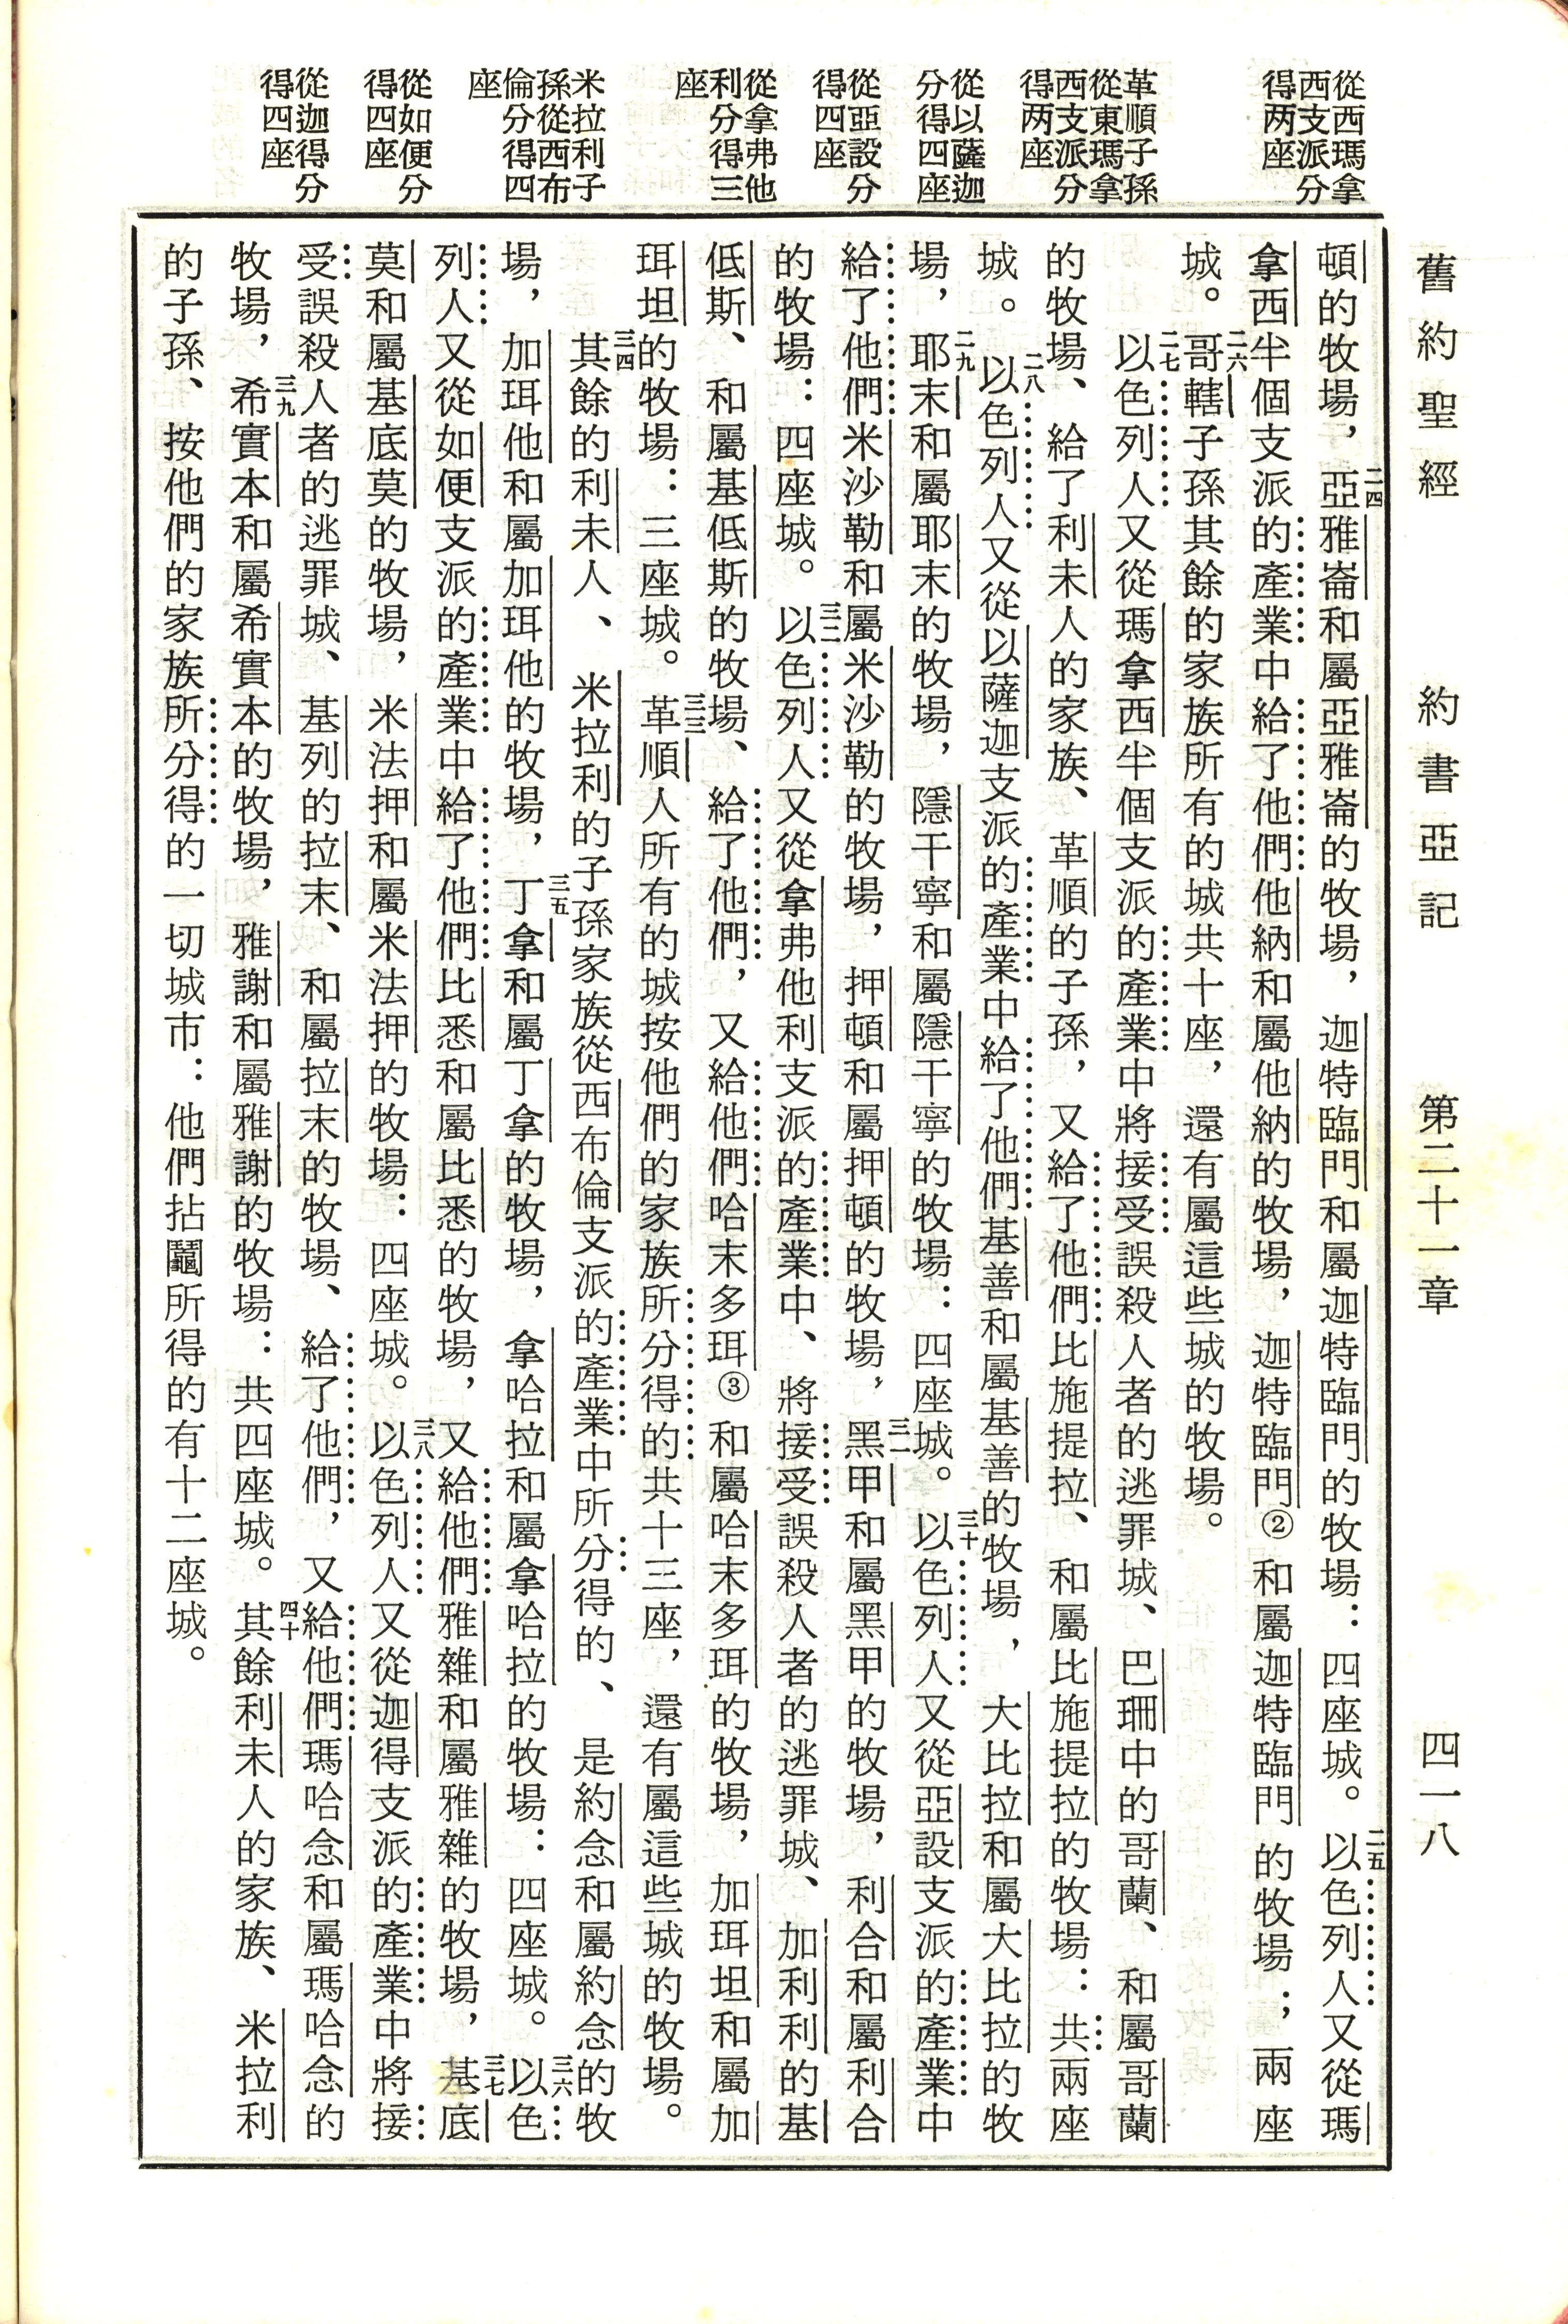 舊約聖經　約書亞記　第二十一章　四一八
從西瑪拿
西支派分
得两座
革順子孫
從東瑪拿
西支派分
得两座
從以薩迦
分得四座
從亞設分
得四座
從拿弗他
利分得三
座
米拉利子
孫從西布
倫分得四
座
從如便分
得四座
從迦得分
得四座
頓的牧場，二四亞雅崙和屬亞雅崙的牧場，迦特臨門和屬迦特臨門的牧場：四座城。二五以色列人又從瑪
拿西半個支派的產業中給了他們他納和屬他納的牧場，迦特臨門②和屬迦特臨門的牧場；兩座
城。二六哥轄子孫其餘的家族所有的城共十座，還有屬這些城的牧場。
二七以色列人又從瑪拿西半個支派的產業中將接受誤殺人者的逃罪城、巴珊中的哥蘭、和屬哥蘭
的牧場、給了利未人的家族、革順的子孫，又給了他們比施提拉、和屬比施提拉的牧場：共兩座
城。二八以色列人又從以薩迦支派的產業中給了他們基善和屬基善的牧場，大比拉和屬大比拉的牧
場，二九耶末和屬耶末的牧場，隱干寧和屬隱干寧的牧場：四座城。三十以色列人又從亞設支派的產業中
給了他們米沙勒和屬米沙勒的牧場，押頓和屬押頓的牧場，三一黑甲和屬黑甲的牧場，利合和屬利合
的牧場：四座城。三二以色列人又從拿弗他利支派的產業中、將接受誤殺人者的逃罪城、加利利的基
低斯、和屬基低斯的牧場、給了他們，又給他們哈末多珥③和屬哈末多珥的牧場，加珥坦和屬加
珥坦的牧場：三座城。三三革順人所有的城按他們的家族所分得的共十三座，還有屬這些城的牧場。
三四其餘的利未人、米拉利的子孫家族從西布倫支派的產業中所分得的、是約念和屬約念的牧
場，加珥他和屬加珥他的牧場，三五丁拿和屬丁拿的牧場，拿哈拉和屬拿哈拉的牧場：四座城。三六以色
列人又從如便支派的產業中給了他們比悉和屬比悉的牧場，又給他們雅雜和屬雅雜的牧場，三七基底
莫和屬基底莫的牧場，米法押和屬米法押的牧場：四座城。三八以色列人又從迦得支派的產業中將接
受誤殺人者的逃罪城、基列的拉末、和屬拉末的牧場、給了他們，又給他們瑪哈念和屬瑪哈念的
牧場，三九希實本和屬希實本的牧場，雅謝和屬雅謝的牧場：共四座城。四十其餘利未人的家族、米拉利
的子孫、按他們的家族所分得的一切城市：他們拈鬮所得的有十二座城。